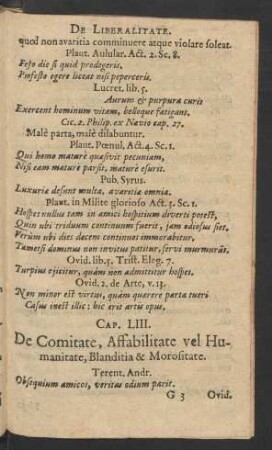 DE LIBERALITATE.
quod non avaritia comminuere atque violare soleat.
Plaut. Aulular. Act. 2. Sc. 8.
Festo die si quid prodegeris,
Profesto egere liceat nisi peperceris.
Lucret. lib. 5.
Aurum & purpura curis
Exercent hominum vitam, belloque fatigant.
Cic. 2. Philip. ex Nævio cap. 27.
Malè parta, malè dilabuntur.
Plaut. Pœnul. Act. 4. Sc. 1.
Qui homo maturè quæsivit pecuniam,
Nisi eam maturè parsit, maturè esurit.
Pub. Syrus.
Luxuriæ desunt multa, avaritiæ omnia.
Plaut. in Milite glorioso Act. 3. Sc. 1.
Hospes nullus tam in amici hospitium diverti potest,
Quin ubi triduum continuum fuerit, jam odiosus siet,
Verùm ubi dies decem continuos immorabitur,
Tametsi dominus non invitus patitur, servi murmurãt.
Ovid. lib. 5. Trist. Eleg. 7.
Turpius ejicitur, quàm non admittitur hospes.
Ovid. 2. de Arte, v. 13.
Non minor est virtus, quàm quærere parta tueri
Casus inest illic: hic erit artis opus.
CAP. LIII.
De Comitate, Affabilitate vel Hu-
manitate, Blanditia & Morositate.
Terent. Andr.
Obsequium amicos, veritas odium parit.
G 3 Ovid.